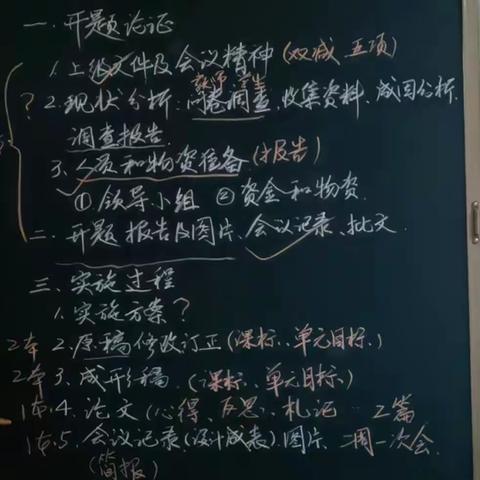 一. 开题论证
1. 上级文件及会议精神 (双减 五项)
教师 学生
? 2. 现状分析: 问卷调查, 收集资料、成因分析.
调查报告
3、人员和物资准备 (报告)
① 领导小组 ② 资金和物资.
二. 开题报告及图片、会议记录、批文.
三、实施过程
1. 实施方案?
2本 2. 原稿修改订正 (课标、单元目标.)
2本 3. 成形稿. (课标、单元目标.)
1本. 4. 论文 (心得、反思、札记 2篇
1本. 5. 会议记录 (设计成表) 图片、二周一次会.
(简报)